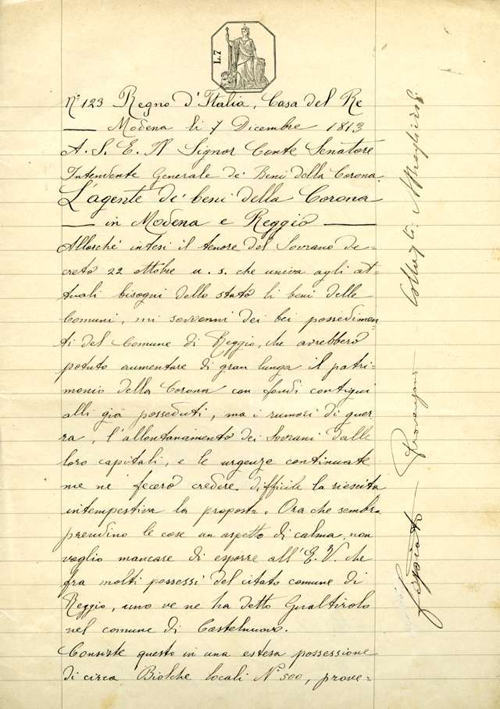 L. 7
N.° 123 Regno d'Italia, Casa del Re
— Modena li 7 Dicembre 1813
A. S. E. Il Signor Conte Senatore
Intendente Generale de' Beni della Corona
L'agente de' beni della Corona
— in Modena e Reggio —
Allorché intesi il tenore del Sovrano de-
creto 22 ottobre u. s. che univa agli at-
tuali bisogni dello stato li beni delle
Comuni, mi sovvenni dei bei possedimen
ti del Comune di Reggio, che avrebbero
potuto aumentare di gran lunga il patri-
monio della Corona con fondi contigui
alli già posseduti, ma i rumori di guer
ra, l'allontanamento dei Sovrani dalle
loro capitali, e le urgenze continuate
me ne fecero credere difficile la riescita
intempestiva la proposta. Ora che sembra
prendino le cose un aspetto di calma, non
voglio mancare di esporre all'E. V. che
fra molti possessi del citato comune di
Reggio, uno ve ne ha detto Gualtirolo
nel comune di Castelnuovo.
Consiste questo in una estesa possessione
di circa Biolche locali N.° 500, prove-